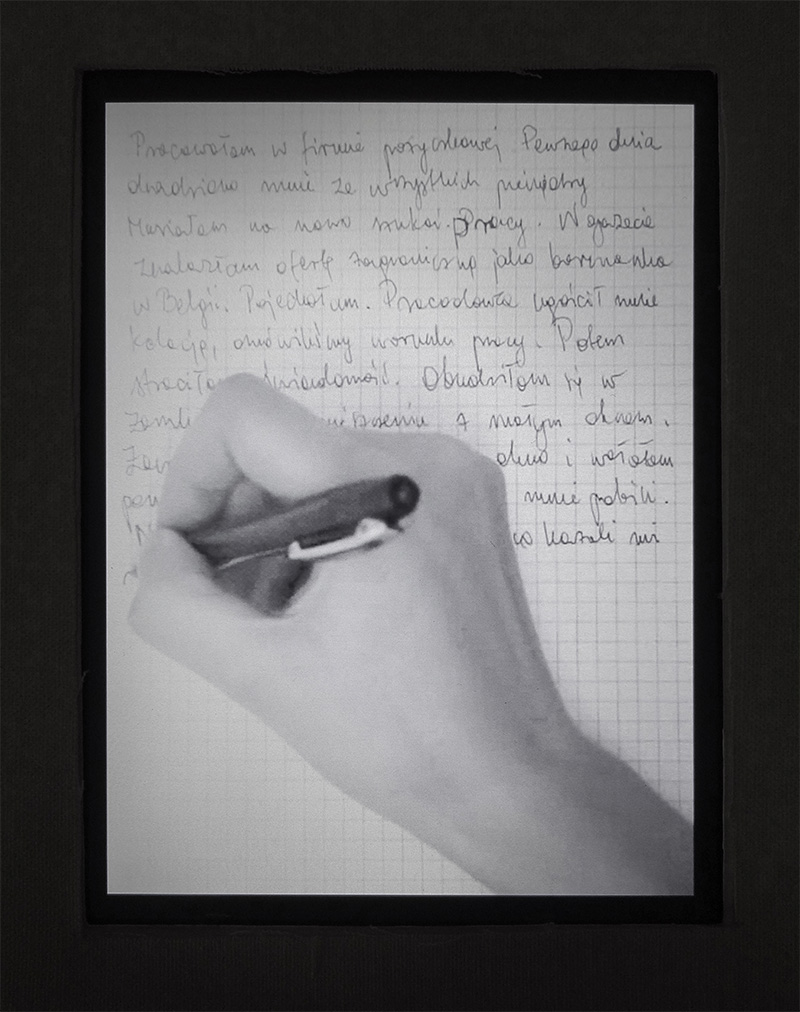 Pracowałam w firmie pożyczkowej Pewnego dnia
okradziono mnie ze wszystkich pieniędzy
Musiałam na nowo szukać pracy. W gazecie
znalazłam ofertę zagraniczną jako barmanka
w Belgii. Pojechałam. Pracodawca ugościł mnie
kolacją, omówiliśmy warunki pracy. Potem
straciłam świadomość. Obudziłam się w
z małym oknem.
okno i wołałam
mnie pobili.
kazali mi